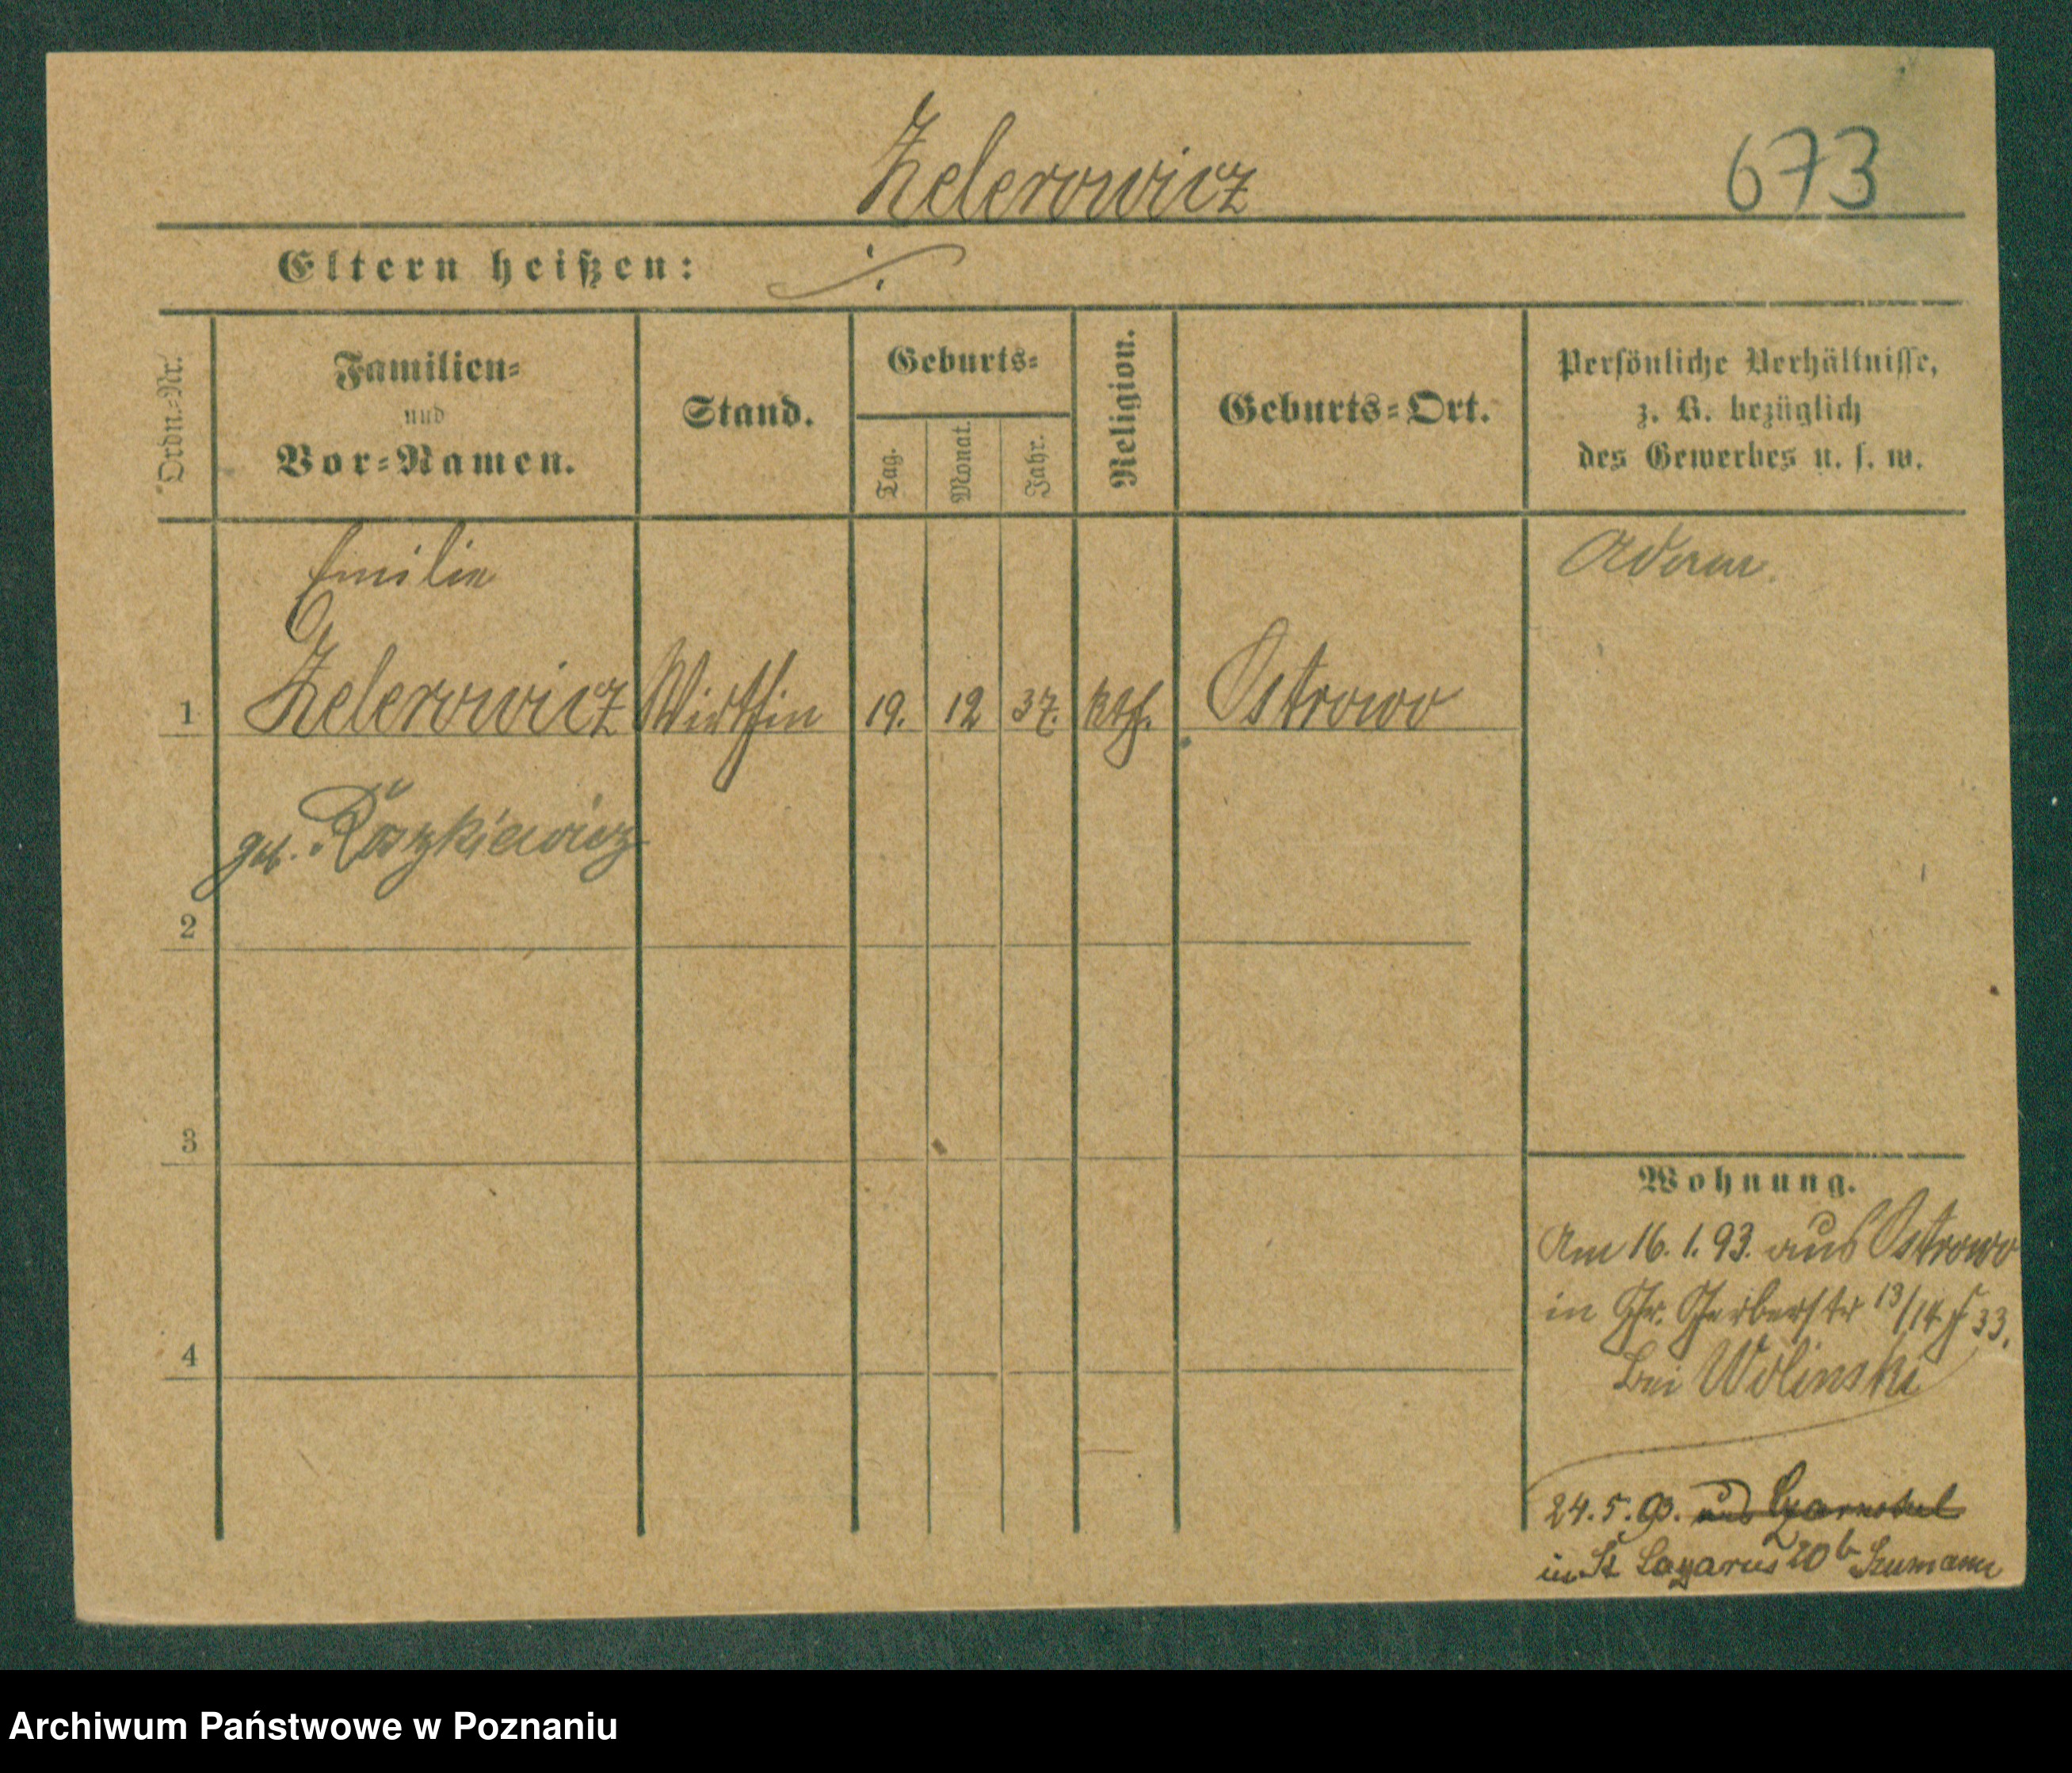 Zelerowicz
673
Eltern heißen: ./.
Ordn.-Nr.
Familien-
und
Vor-Namen.
Stand.
Geburts-
Tag.
Monat.
Jahr.
Religion.
Geburts-Ort.
Persönliche Verhältnisse,
z. B. bezüglich
des Gewerbes u. s. w.
Emilie
1 Zelerowicz Wirthin 19. 12 37. kth. Ostrowo
geb.
2
3
4
Wohnung.
Am 16. 1. 93. aus Ostrowo
in Gr. Gerberstr 13/14 33.
bei Wolinski
24. 5. 93.
in St Lazarus 20b
Archiwum Państwowe w Poznaniu